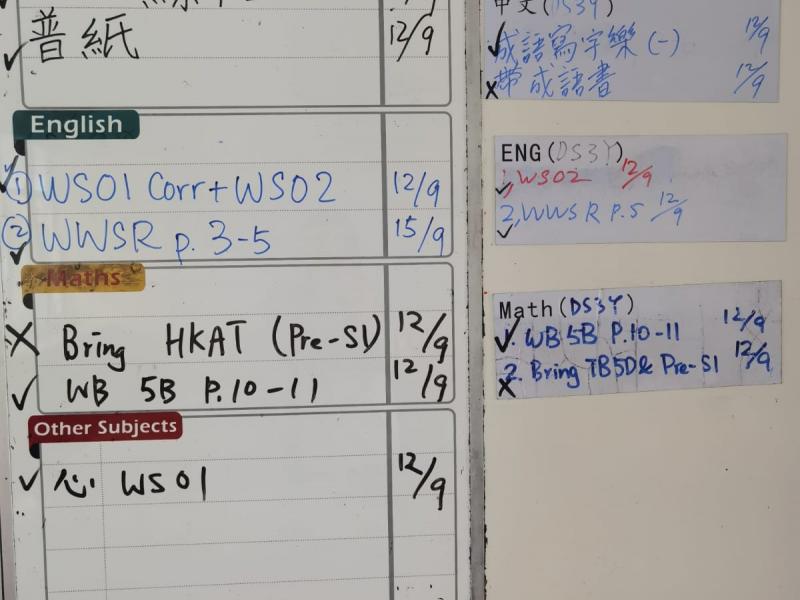 普紙 12/9
English
① WS01 Corr+WS02 12/9
② WWSR p. 3-5 15/9
Maths
Bring HKAT (Pre-S1) 12/9
WB 5B P.10-11 12/9
Other Subjects
心 WS01 12/9
中文(DS3Y)
成語寫字樂(一) 12/9
帶成語書 12/9
ENG(DS3Y)
1, WS02 12/9
2, WWSR P.5 12/9
Math(DS3Y)
1. WB 5B P.10-11 12/9
2. Bring TB5D& Pre-S1 12/9